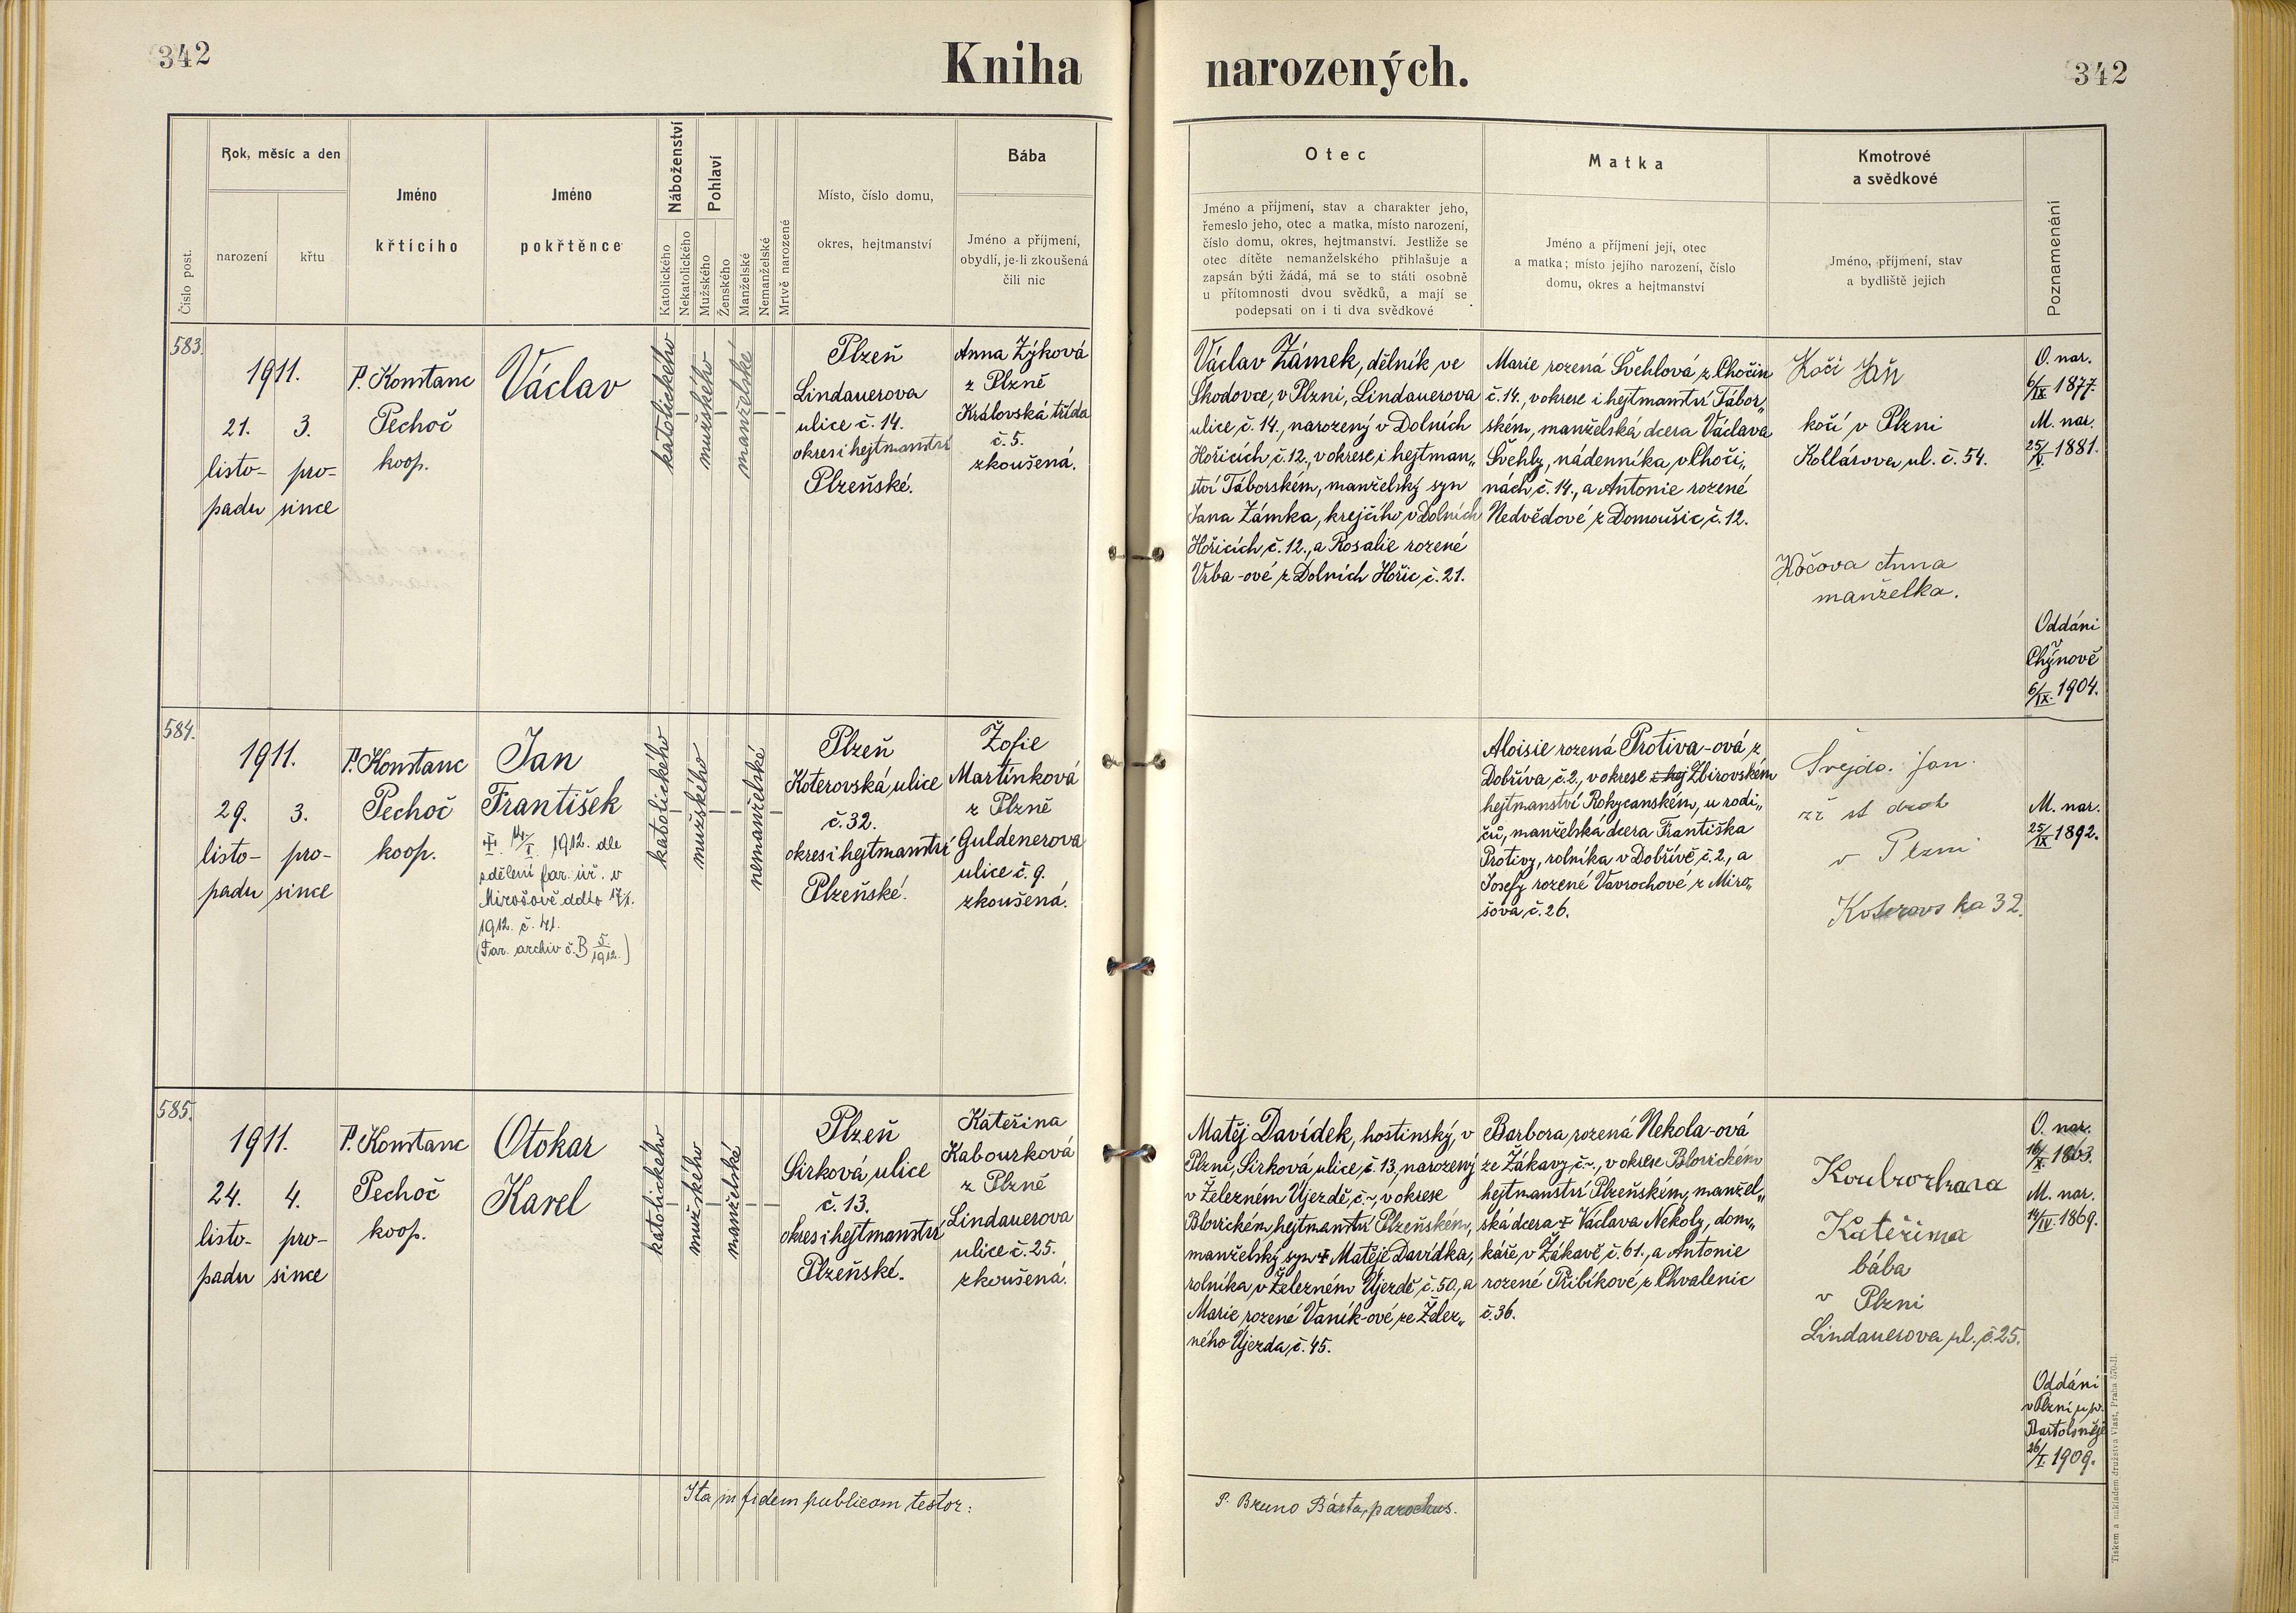 342
Kniha
narozených.
342
Číslo post.
Rok, měsíc a den
narození
křtu
Jméno
křtícího
Jméno
pokřtěnce
Náboženství
Katolického
Nekatolického
Pohlaví
Mužského
Ženského
Manželské
Nemanželské
Mrtvě narozené
Místo, číslo domu,
okres, hejtmanství
Bába
Jméno a příjmení,
obydlí, je-li zkoušená
čili nic
Otec
Jméno a příjmení, stav a charakter jeho,
řemeslo jeho, otec a matka, místo narození,
číslo domu, okres, hejtmanství. Jestliže se
otec dítěte nemanželského přihlašuje a
zapsán býti žádá, má se to státi osobně
u přítomnosti dvou svědků, a mají se
podepsati on i ti dva svědkové
Matka
Jméno a příjmení její, otec
a matka; místo jejího narození, číslo
domu, okres a hejtmanství
Kmotrové
a svědkové
Jméno, příjmení, stav
a bydliště jejich
Poznamenání
583.
1911.
21.
listo-
padu
3.
pro-
since
P. Konstanc
Pechoč
koop.
Václav
katolického
mužského
manželské
Plzeň
Lindauerova
ulice č. 14.
okres i hejtmanství
Plzeňské.
Anna Zýková
z Plzně
Královská třída
č. 5.
zkoušená.
Václav Zámek, dělník ve
Škodovce, v Plzni, Lindauerova
ulice č. 14., narozený v Dolních
Hořicích č. 12., v okrese i hejtman„
ství Táborském, manželský syn
Jana Zámka, krejčího v Dolních
Hořicích č. 12., a Rosalie rozené
Vrba-ové z Dolních Hořic č. 21.
Marie rozená Švehlová z Chočin
č. 14., v okrese i hejtmanství Tábor„
ském, manželská dcera Václava
Švehly, nádenníka v Choči„
nách č. 14., a Antonie rozené
Nedvědové z Domoušic č. 12.
Kočí Jan
kočí v Plzni
Kollárova ul. č. 54.
Kočova Anna
manželka.
O. nar.
6/IX 1877.
M. nar.
25/V. 1881.
Oddáni
v
Chýnově
6/IX. 1904.
584.
1911.
29.
listo-
padu
3.
pro-
since
P. Konstanc
Pechoč
koop.
Jan
František
14/I. 1912. dle
sdělení far. úř. v
Mirošově ddto 17/I.
1912. č. 41.
(Far. archiv č. B 5/1912.)
katolického
mužského
nemanželské
Plzeň
Koterovská ulice
č. 32.
okres i hejtmanství
Plzeňské.
Žofie
Martínková
z Plzně
Guldenerova
ulice č. 9.
zkoušená.
Aloisie rozená Protiva-ová z
Dobříva č. 2., v okrese i hej Zbirovském
hejtmanství Rokycanském, u rodi„
čů, manželská dcera Františka
Protivy, rolníka v Dobřívě č. 2., a
Josefy rozené Vavrochové z Miro„
šova č. 26.
Švejda Jan
v Plzni
Koterovska 32.
M. nar.
25/IX 1892.
585.
1911.
24.
listo-
padu
4.
pro-
since
P. Konstanc
Pechoč
koop.
Otokar
Karel
katolického
mužského
manželské
Plzeň
Sirková ulice
č. 13.
okres i hejtmanství
Plzeňské.
Kateřina
Kabourková
z Plzně
Lindauerova
ulice č. 25.
zkoušená.
Matěj Davídek, hostinský v
Plzni, Sirková ulice č. 13, narozený
v Železném Újezdě č. ~, v okrese
Blovickém hejtmanství Plzeňském,
manželský syn ☨ Matěje Davídka,
rolníka v Železném Újezdě č. 50., a
Marie rozené Vaník-ové ze Želez„
ného Újezda č. 45.
Barbora rozená Nekola-ová
ze Žákavy č. ~., v okrese Blovickém
hejtmanství Plzeňském, manžel„
ská dcera ☨ Václava Nekoly, dom„
káře v Žákavě č. 61., a Antonie
rozené Přibíkové z Chvalenic
č. 36.
Kateřina
bába
v Plzni
Lindauerova ul. č. 25.
O. nar.
16/X. 1863.
M. nar.
14/IV. 1869.
Oddáni
v Plzni u sv.
Bartoloměje
26/I. 1909.
Ita in fidem publicam testor:
P. Bruno Bárta, parochus.
Tiskem a nákladem družstva Vlast, Praha 570-II.